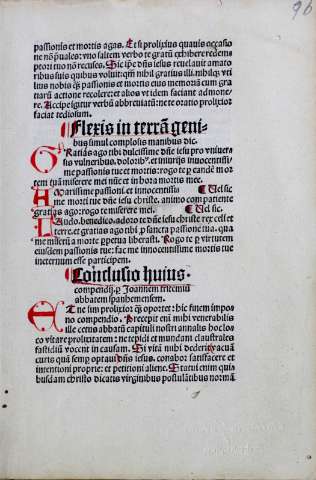 96
passionis et mortis agas. Et si prolixius quauis occasio
ne nō p̄uales: vno saltem verbo te gratū exhibere redem
ptori tuo nō recuses. Sic ip̄e dn̄s iesus reuelauit amato
ribus suis quibus voluit: qm̄ nihil gratius illi. nihilq; vti
lius nobis q̄ꝫ passionis et mortis eius memoriā cum grati
arū actione recolere: et alios vt idem faciant admone
re. Accipe igitur verbū abbreuiatū: ne te oratio prolixior
faciat tediosum.
Flexis in terrā geni-
bus simul complosis manibus dic.
Gratias ago tibi dulcissime dn̄e iesu pro vniuersis
vulneribus. dolorib⁹. et iniurijs innocentissi
me passionis tue et mortis: rogo te p eandē mor
tem tuā miserere mei nūc et in hora mortis mee.
Amarissime passioni. et innocentissi Vel sic
me morti tue dn̄e iesu christe. animo cum patiente
gratias ago: rogo te miserere mei. Vel sic.
Laudo. benedico. adoro te dn̄e iesu christe rex celi et
terre. et gratias ago tibi p sancta passione tua. qua
me miserū a morte ppetua liberasti. Rogo te p virtutem
eiusdem passionis tue: fac me innocentissime mortis tue
in eternum esse participem.
Conclusio huius
compendij. p Joannem tritemiū
abbatem spanhemensem.
At ne sim prolixior q̄ꝫ oportet: hic finem impo
no compendio. Precepit eni mihi venerabilis
ille cetus abbatū capituli nostri annalis hoc loco
vitare prolixitatem: ne tepidi et mundani claustrales
fastidiū vocent in causam. Si vitā mihi dederit vacuā
curis quā semp optaui dn̄s iesus. conabor satisfacere et
intentioni proprie: et petitioni aliene. Statui enim qui
busdam christo dicatis virginibus postulātibus normā